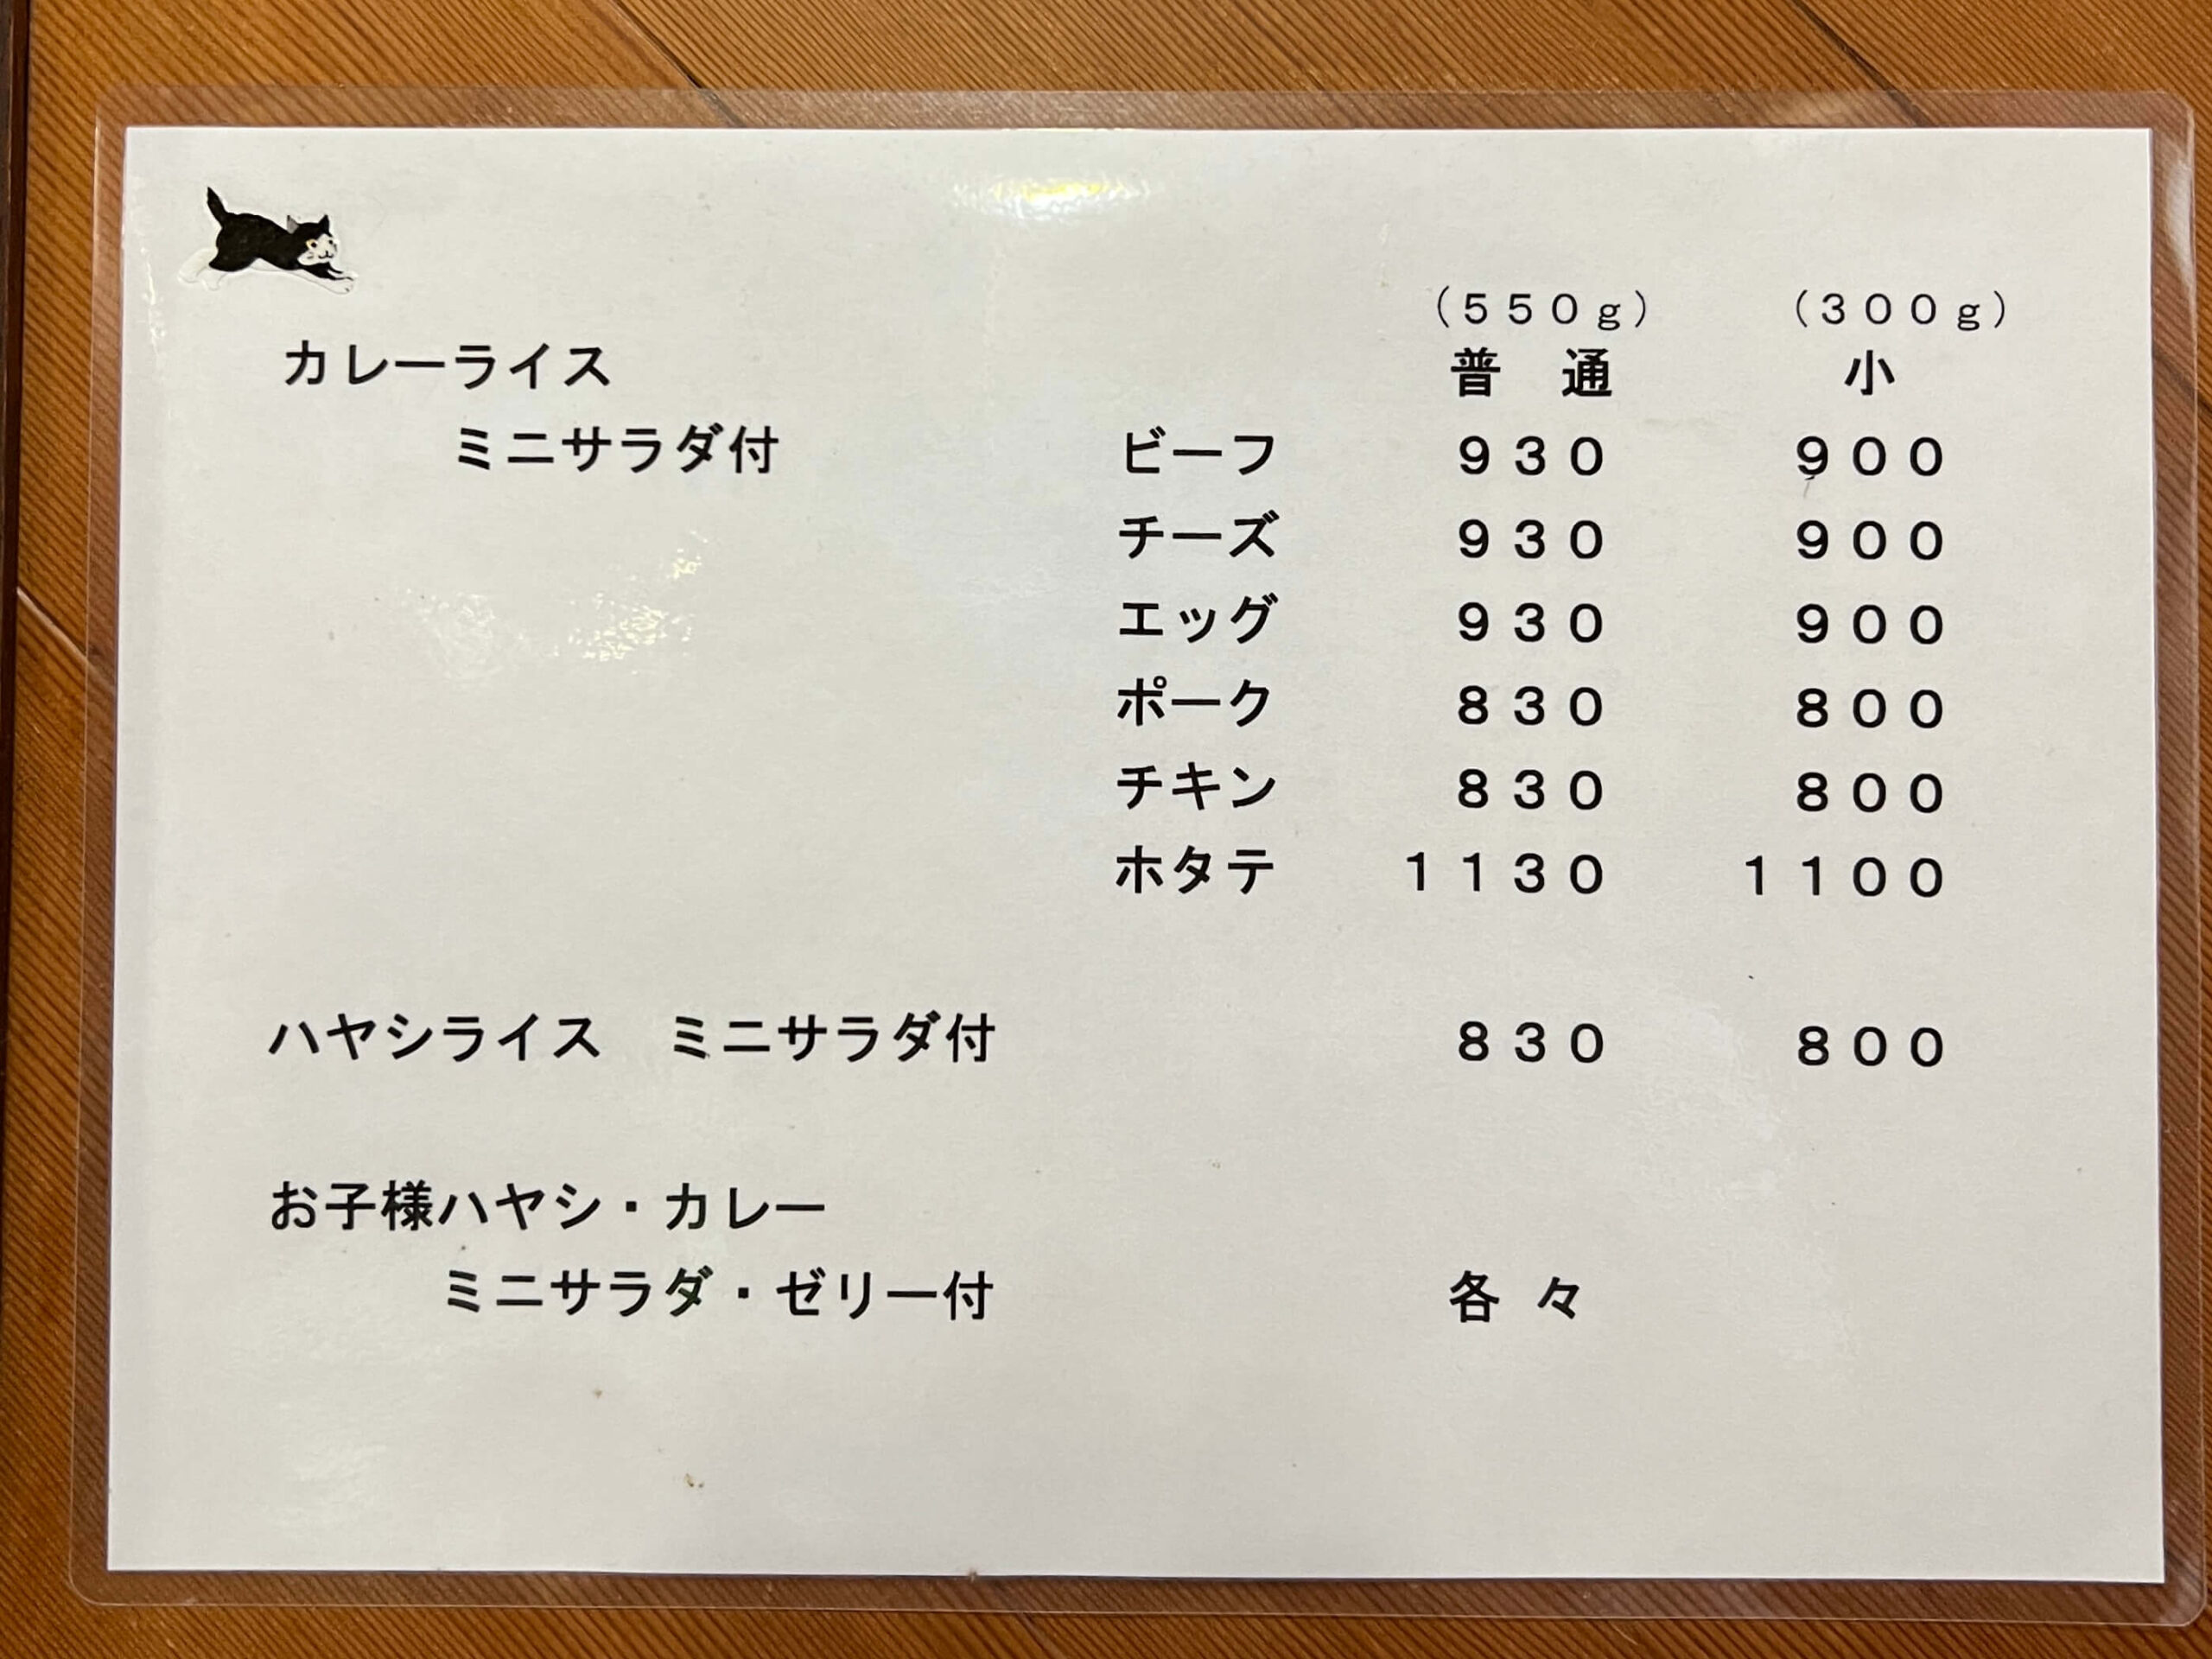 （５５０ｇ）　（３００ｇ）
カレーライス　普　通　小
ミニサラダ付　ビーフ　９３０　９００
チーズ　９３０　９００
エッグ　９３０　９００
ポーク　８３０　８００
チキン　８３０　８００
ホタテ　１１３０　１１００
ハヤシライス　ミニサラダ付　８３０　８００
お子様ハヤシ・カレー
ミニサラダ・ゼリー付　各 々